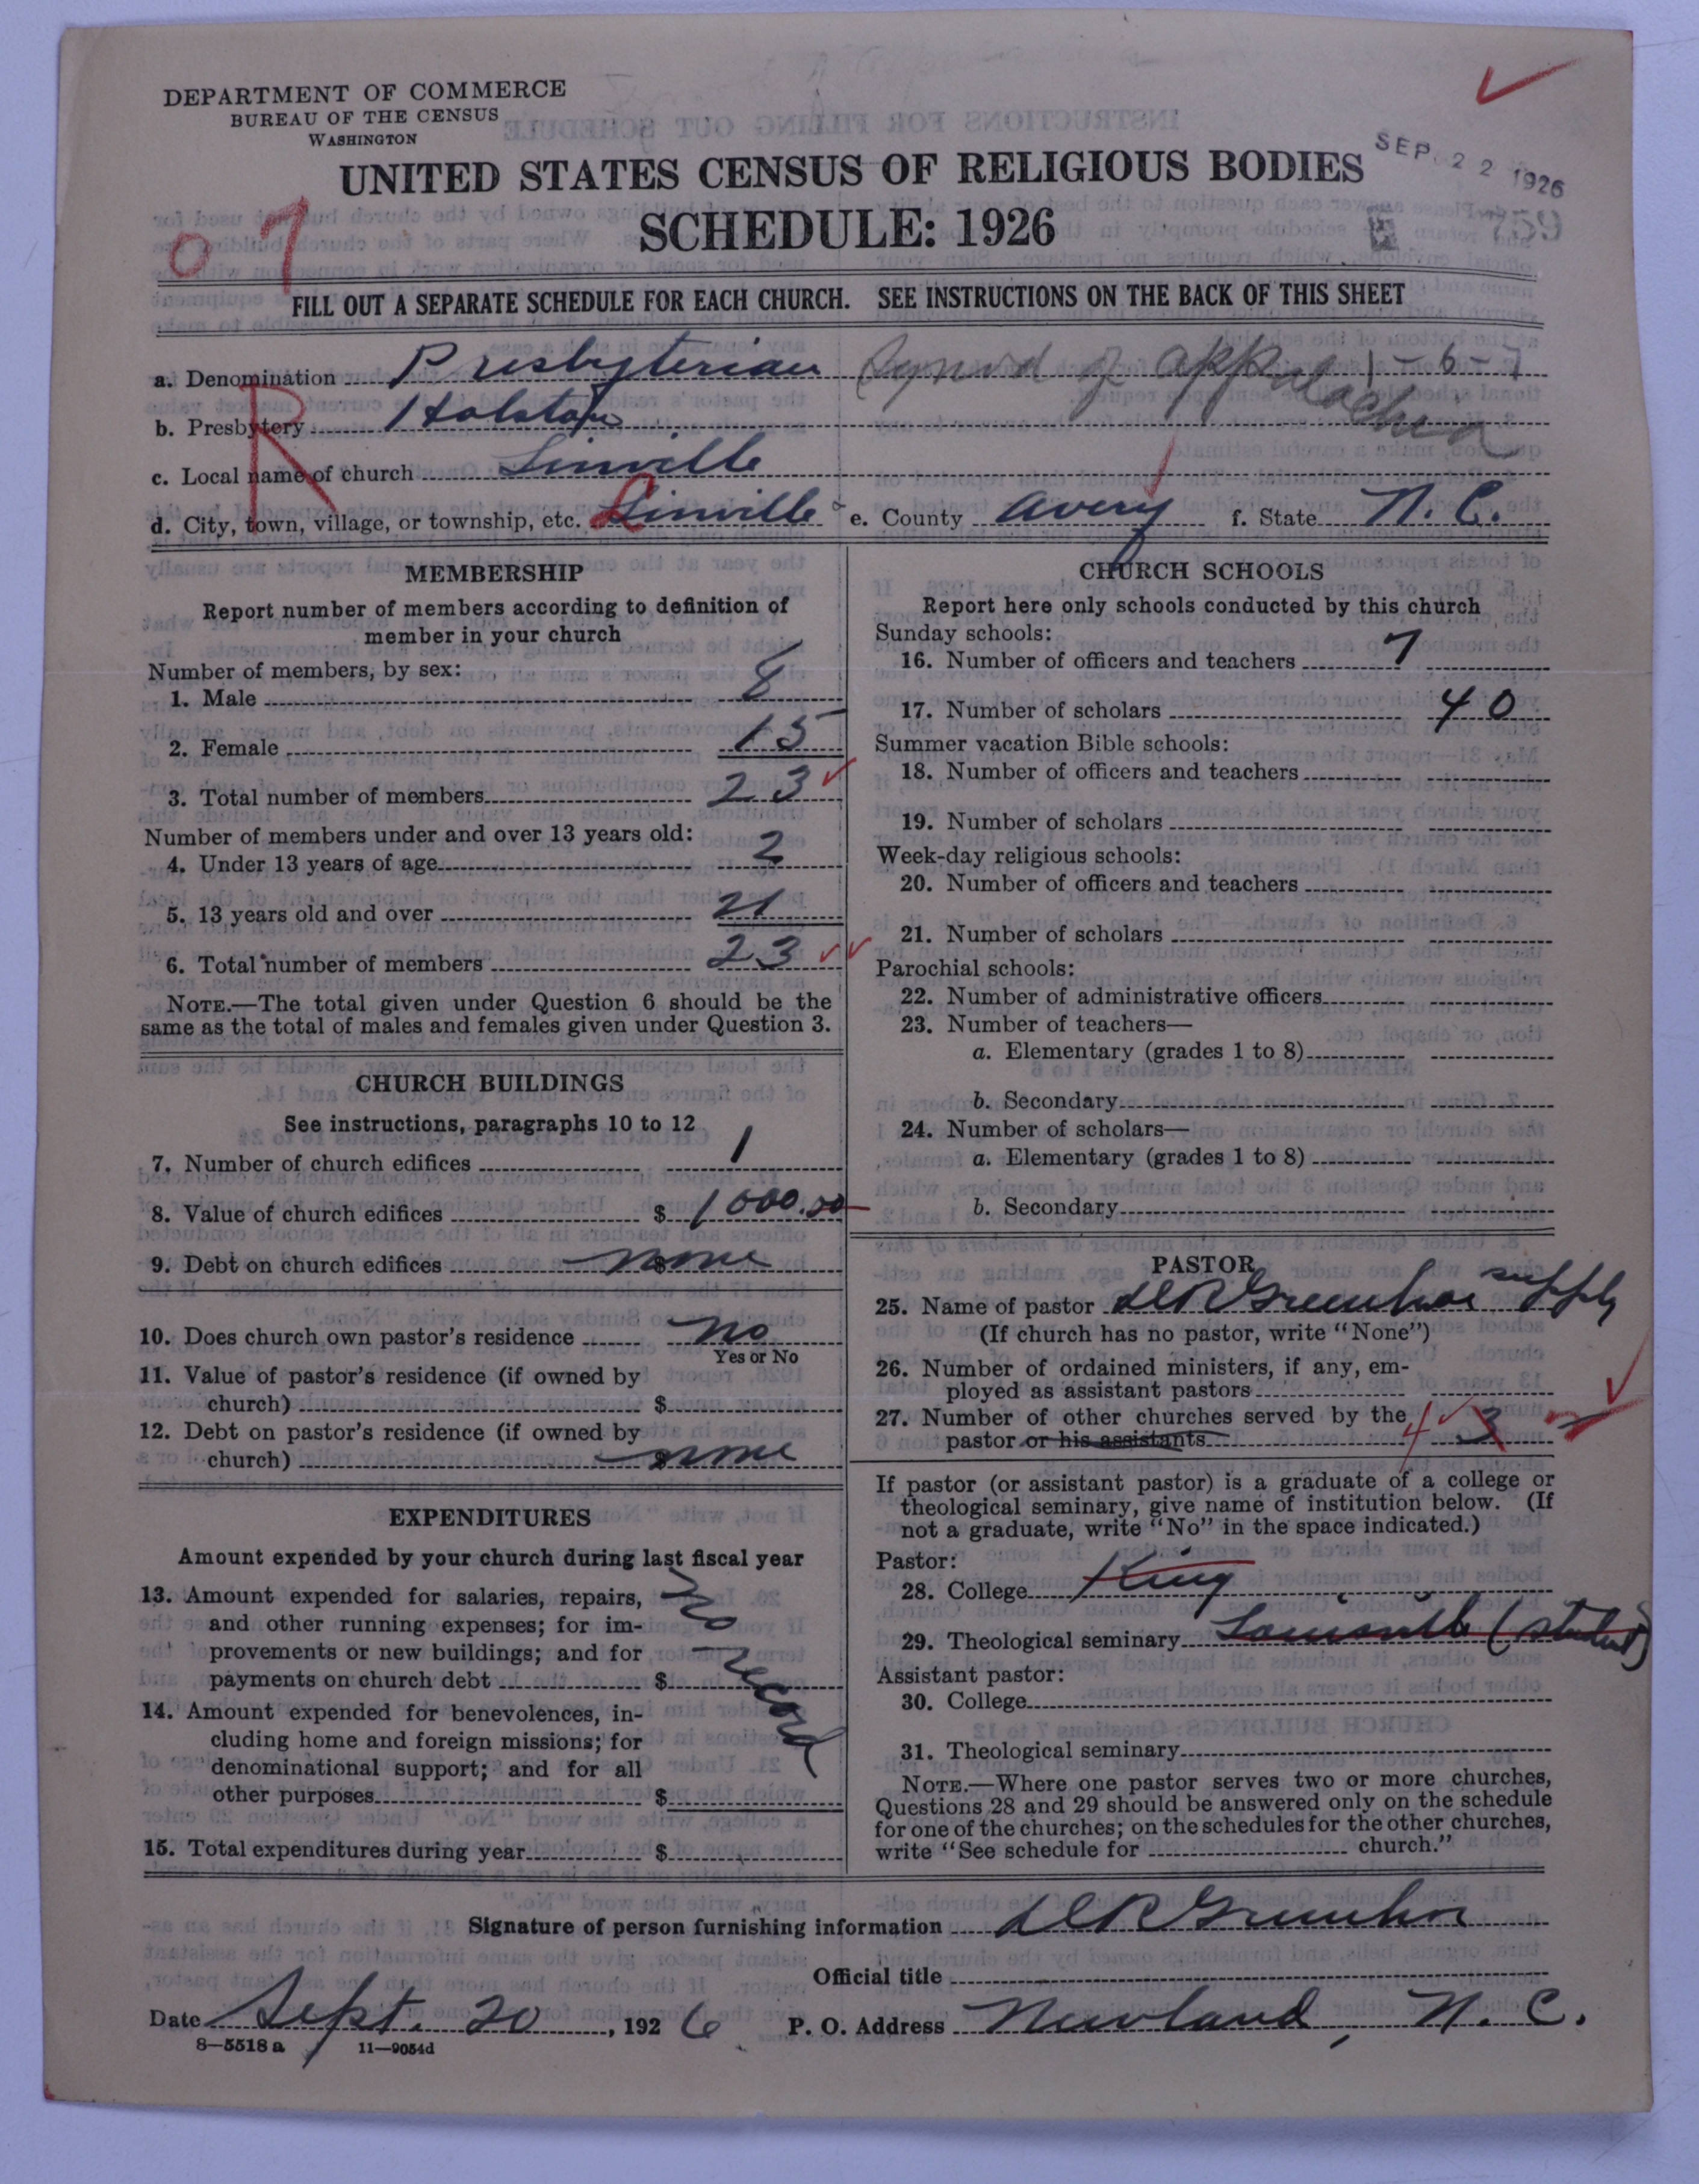 DEPARTMENT OF COMMERCE
BUREAU OF THE CENSUS
WASHINGTON
UNITED STATES CENSUS OF RELIGIOUS BODIES
SCHEDULE: 1926
SEP 22 1926
759
0 7
FILL OUT A SEPARATE SCHEDULE FOR EACH CHURCH. SEE INSTRUCTIONS ON THE BACK OF THIS SHEET
a. Denomination Presbyterian Synod of Appalachia 1-6-7
b. Presbytery Holston
R
c. Local name of church Linville
d. City, town, village, or township, etc. Linville e. County Avery f. State N. C.
MEMBERSHIP
Report number of members according to definition of
member in your church
Number of members, by sex:
1. Male 8
2. Female 15
3. Total number of members 23
Number of members under and over 13 years old:
4. Under 13 years of age 2
5. 13 years old and over 21
6. Total number of members 23
NOTE.—The total given under Question 6 should be the
same as the total of males and females given under Question 3.
CHURCH BUILDINGS
See instructions, paragraphs 10 to 12
7. Number of church edifices 1
8. Value of church edifices $ 1000.00
9. Debt on church edifices $ none
10. Does church own pastor's residence no
Yes or No
11. Value of pastor's residence (if owned by
church) $
12. Debt on pastor's residence (if owned by
church) $ none
EXPENDITURES
Amount expended by your church during last fiscal year
13. Amount expended for salaries, repairs,
and other running expenses; for im-
provements or new buildings; and for
payments on church debt $
no record
14. Amount expended for benevolences, in-
cluding home and foreign missions; for
denominational support; and for all
other purposes $
15. Total expenditures during year $
CHURCH SCHOOLS
Report here only schools conducted by this church
Sunday schools:
16. Number of officers and teachers 7
17. Number of scholars 40
Summer vacation Bible schools:
18. Number of officers and teachers
19. Number of scholars
Week-day religious schools:
20. Number of officers and teachers
21. Number of scholars
Parochial schools:
22. Number of administrative officers
23. Number of teachers—
a. Elementary (grades 1 to 8)
b. Secondary
24. Number of scholars—
a. Elementary (grades 1 to 8)
b. Secondary
PASTOR
25. Name of pastor supply
(If church has no pastor, write "None")
26. Number of ordained ministers, if any, em-
ployed as assistant pastors
27. Number of other churches served by the
pastor or his assistants 4 3
If pastor (or assistant pastor) is a graduate of a college or
theological seminary, give name of institution below. (If
not a graduate, write "No" in the space indicated.)
Pastor:
28. College King
29. Theological seminary Louisville (student)
Assistant pastor:
30. College
31. Theological seminary
NOTE.—Where one pastor serves two or more churches,
Questions 28 and 29 should be answered only on the schedule
for one of the churches; on the schedules for the other churches,
write "See schedule for church."
Signature of person furnishing information
Official title
Date Sept. 20, 1926 P. O. Address Newland, N. C.
8—5518 a 11—9054d